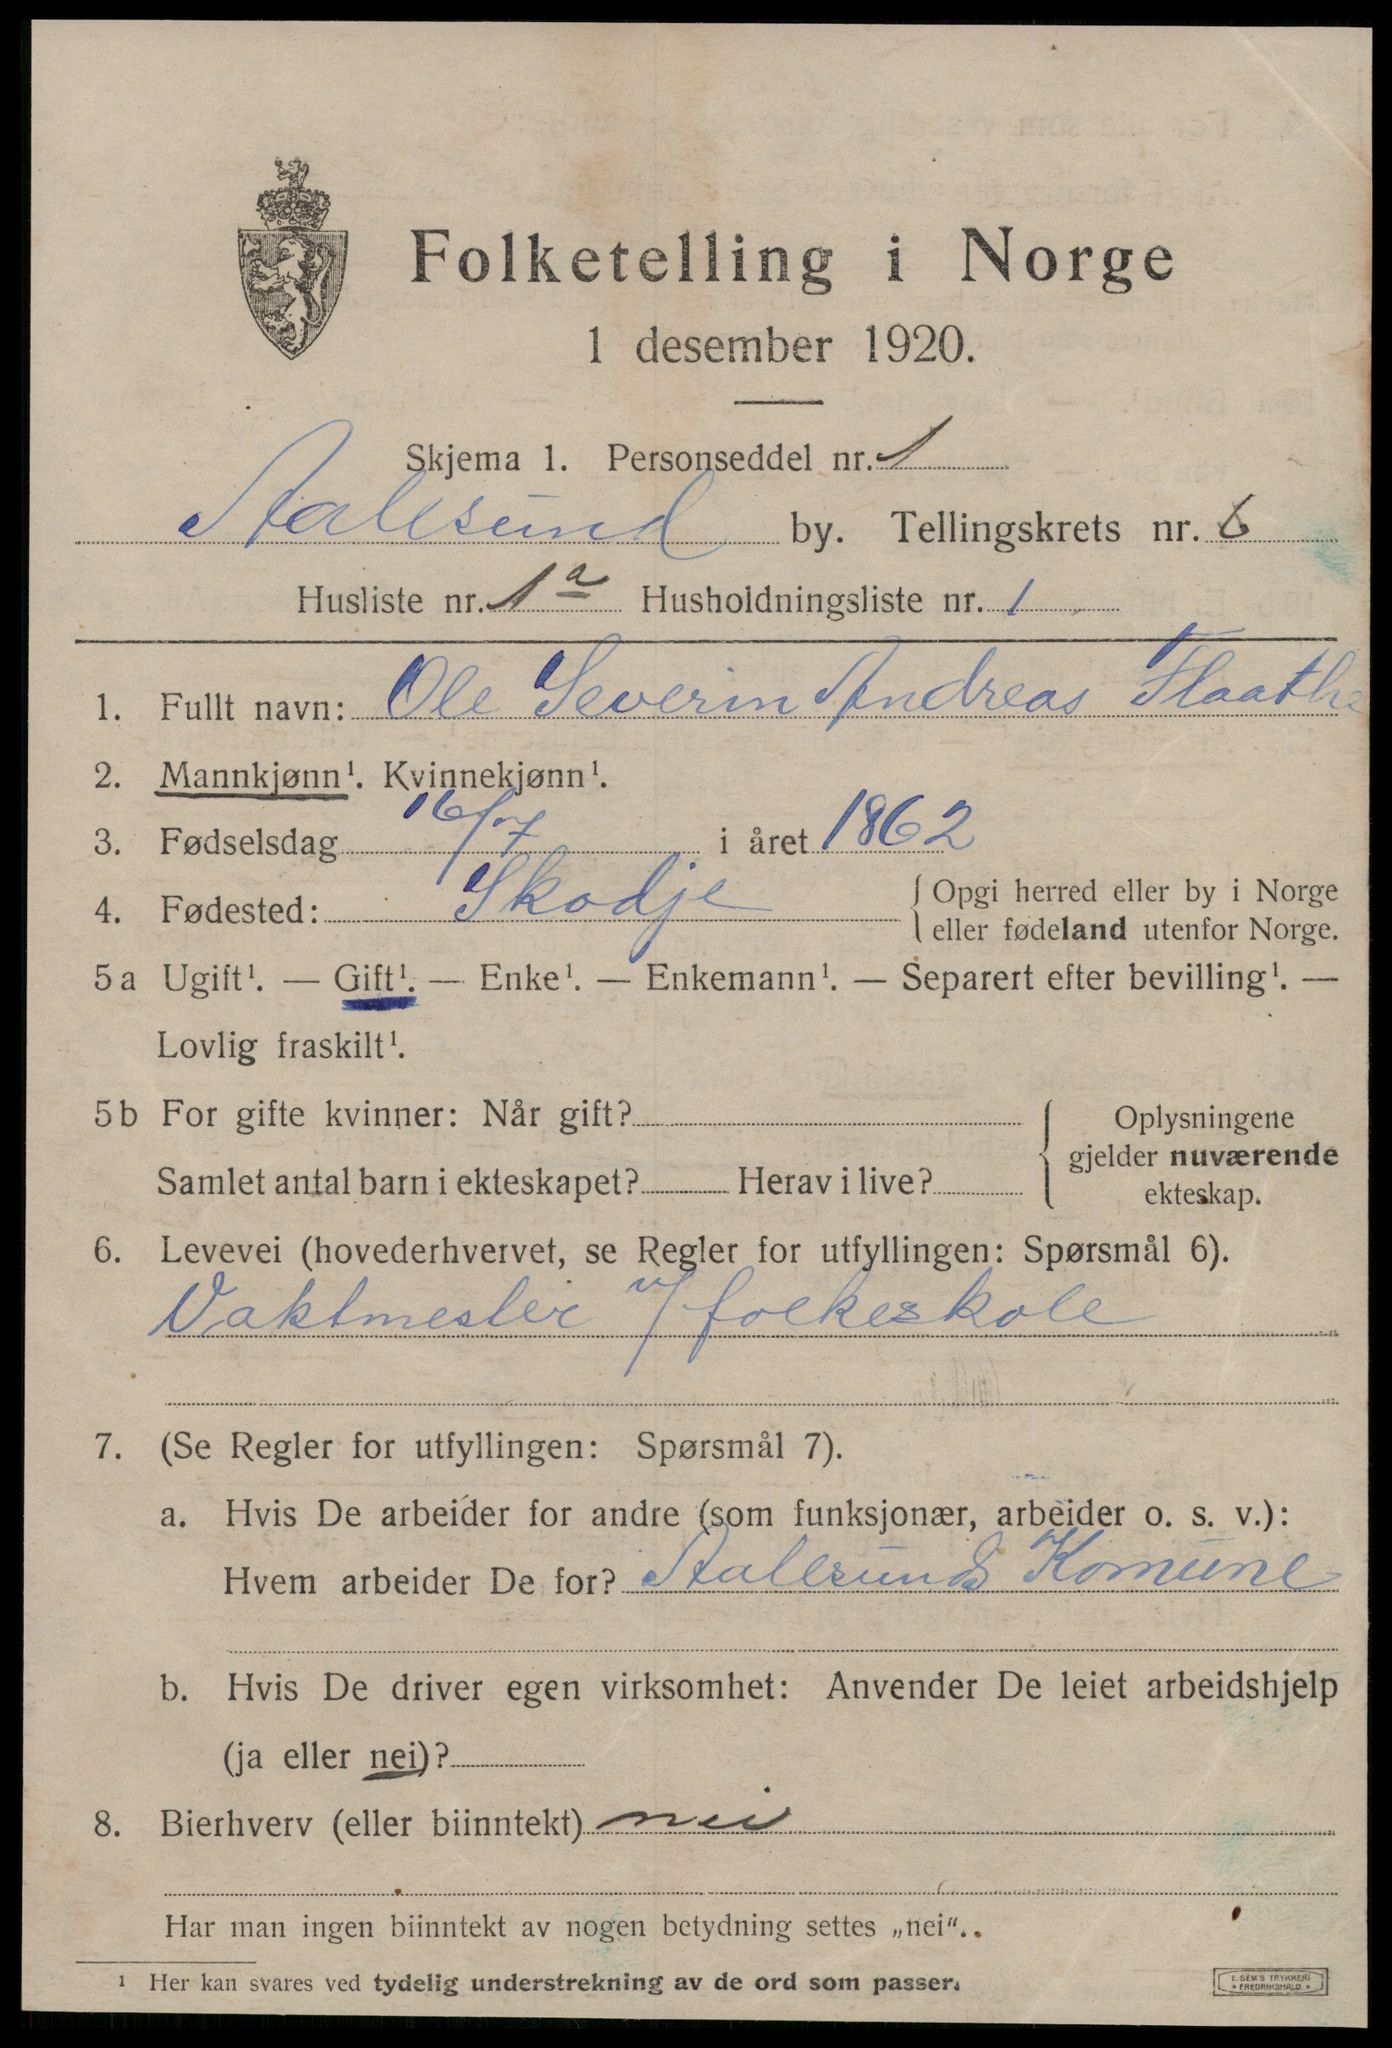 Folketelling i Norge
1 desember 1920.
Skjema 1. Personseddel nr. 1
Aalesund by. Tellingskrets nr. 6
Husliste nr. 1a Husholdningsliste nr. 1
1. Fullt navn: Ole Severin Andreas Flaathe
2. Mannkjønn¹. Kvinnekjønn¹.
3. Fødselsdag 16/7 i året 1862
4. Fødested: Skodje { Opgi herred eller by i Norge
eller fødeland utenfor Norge.
5a Ugift¹. — Gift¹. — Enke¹. — Enkemann¹. — Separert efter bevilling¹. —
Lovlig fraskilt¹.
5b For gifte kvinner: Når gift? { Oplysningene
gjelder nuværende
Samlet antal barn i ekteskapet? Herav i live?
ekteskap.
6. Levevei (hovederhvervet, se Regler for utfyllingen: Spørsmål 6).
Vaktmester v/ folkeskole
7. (Se Regler for utfyllingen: Spørsmål 7).
a. Hvis De arbeider for andre (som funksjonær, arbeider o. s. v.):
Hvem arbeider De for? Aalesunds Komune
b. Hvis De driver egen virksomhet: Anvender De leiet arbeidshjelp
(ja eller nei)?
8. Bierhverv (eller biinntekt) nei
Har man ingen biinntekt av nogen betydning settes „nei“.
¹ Her kan svares ved tydelig understrekning av de ord som passer.
E. SEM'S TRYKKERI
FREDRIKSHALD